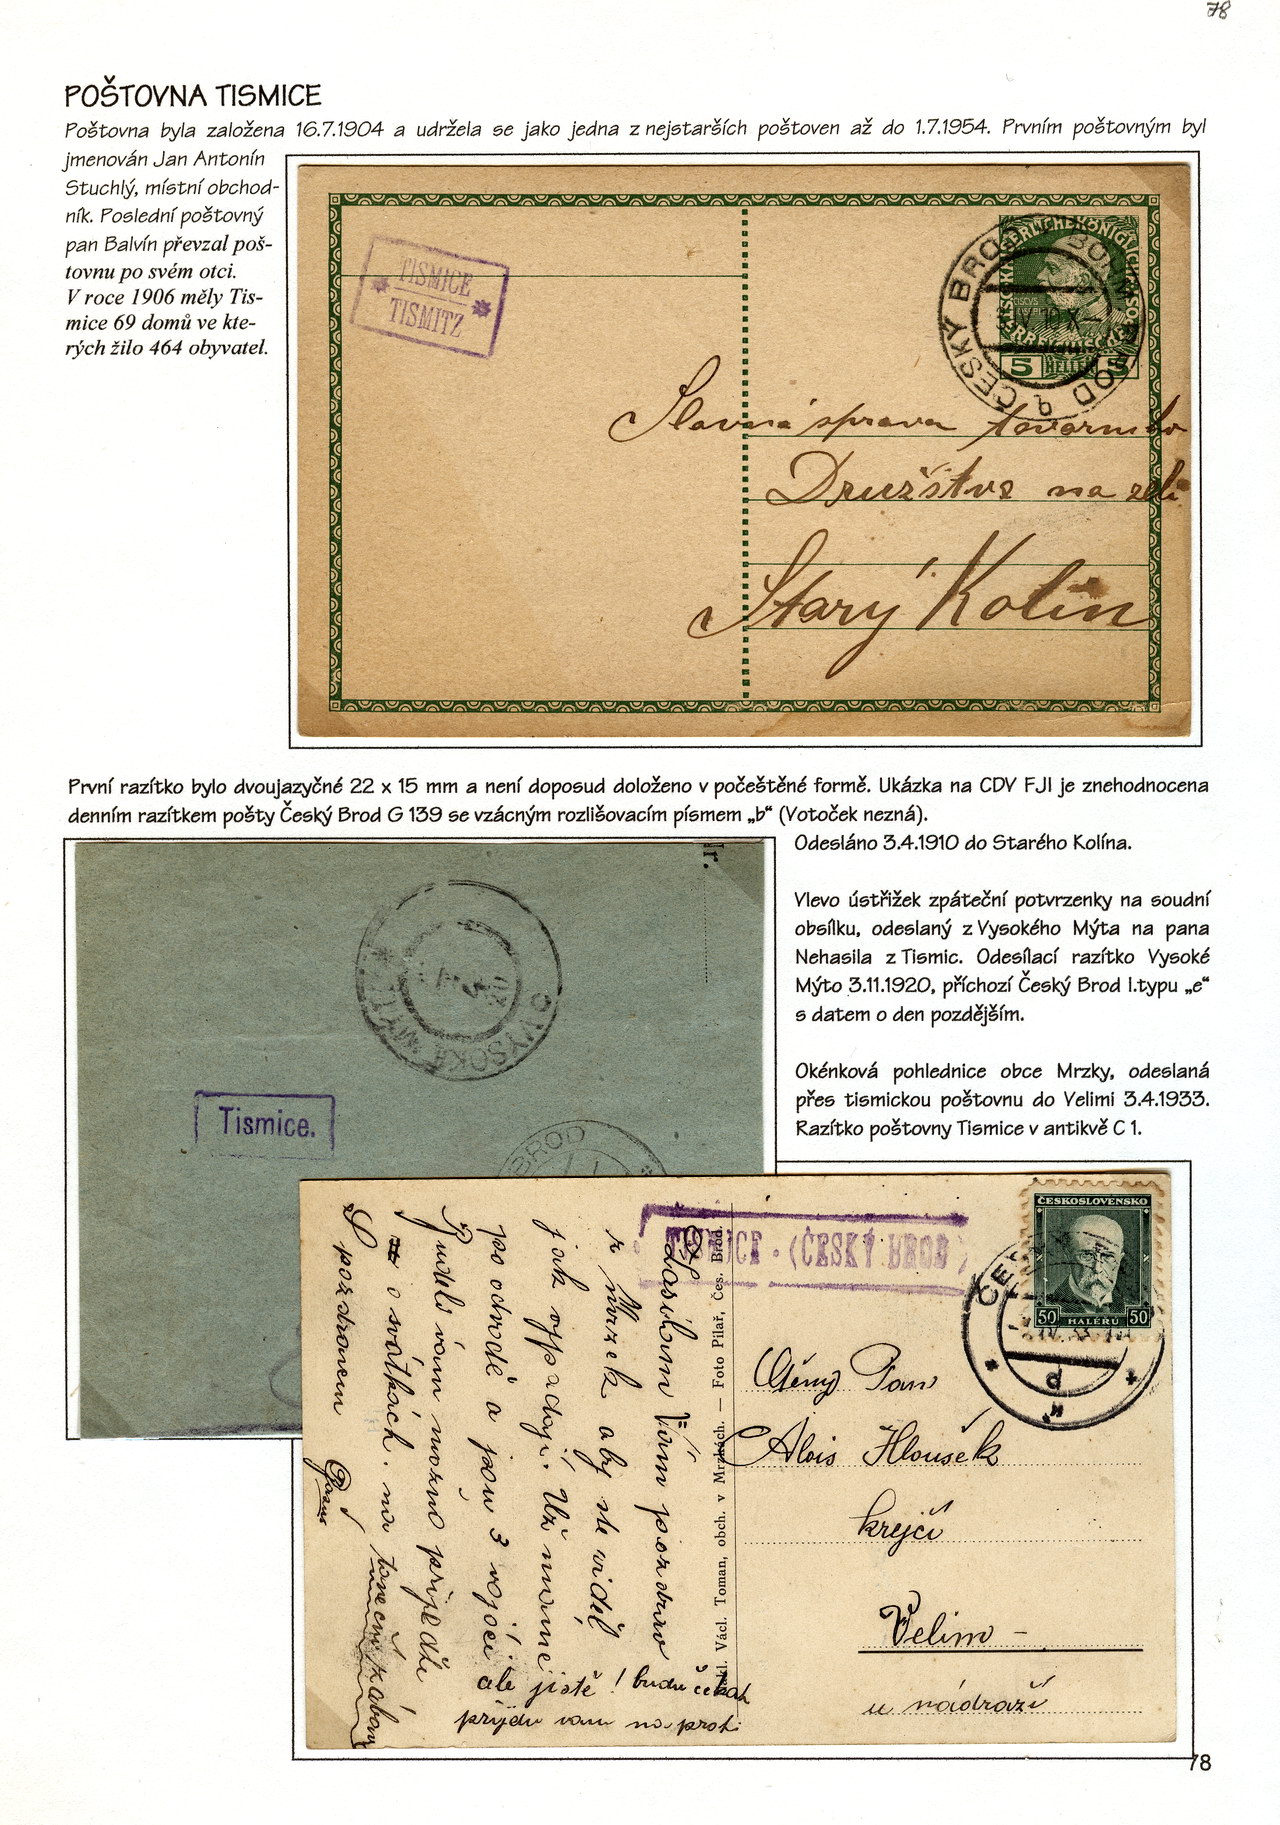 78
POŠTOVNA TISMICE
Poštovna byla založena 16.7.1904 a udržela se jako jedna z nejstarších poštoven až do 1.7.1954. Prvním poštovným byl
jmenován Jan Antonín
Stuchlý, místní obchod-
ník. Poslední poštovný
pan Balvín převzal poš-
tovnu po svém otci.
V roce 1906 měly Tis-
mice 69 domů ve kte-
rých žilo 464 obyvatel.
TISMICE
TISMITZ
ČESKÝ BROD
5 HELLER 5
Slavná správa
Družstva na
Starý Kolín
První razítko bylo dvoujazyčné 22 x 15 mm a není doposud doloženo v počeštěné formě. Ukázka na CDV FJI je znehodnocena
denním razítkem pošty Český Brod G 139 se vzácným rozlišovacím písmem „b“ (Votoček nezná).
Odesláno 3.4.1910 do Starého Kolína.
Vlevo ústřižek zpáteční potvrzenky na soudní
obsílku, odeslaný z Vysokého Mýta na pana
Nehasila z Tismic. Odesílací razítko Vysoké
Mýto 3.11.1920, příchozí Český Brod I.typu „e“
s datem o den pozdějším.
Okénková pohlednice obce Mrzky, odeslaná
přes tismickou poštovnu do Velimi 3.4.1933.
Razítko poštovny Tismice v antikvě C 1.
Nr.
VYSOKÉ MÝTO
Tismice.
BROD
TISMICE - (ČESKÝ BROD)
ČESKOSLOVENSKO
50 HALÉŘŮ 50
Nakl. Václ. Toman, obch. v Mrzkách. — Foto Pilař, Čes. Brod.
Zasílám Vám pozdrav
z Mrzek aby ste viděl
jak
po odvodě a jsou 3 vojáci
Budeli vám možno přijeďte
o svátkách. na
S pozdravem
ale jistě! budu čekat
přijdu vam na proti
Ctěný Pan
Alois Hlousék
krejčí
Velim -
u nádraží
78